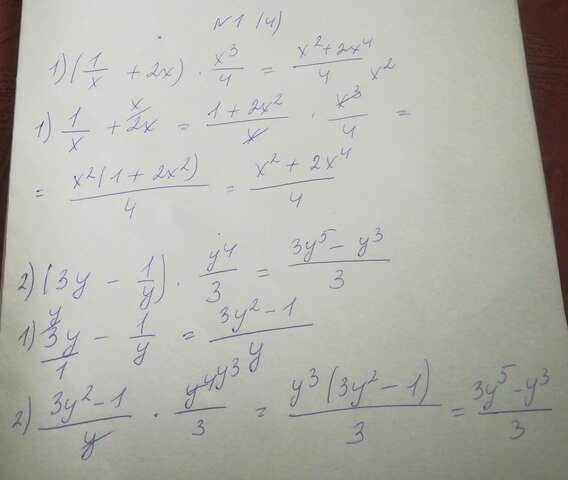 №1 (4)
1) (1/x + 2x) · x³/4 = (x² + 2x⁴)/4
1) 1/x + 2x = (1 + 2x²)/x · x³/4 =
= x²(1 + 2x²)/4 = (x² + 2x⁴)/4
2) (3y - 1/y) · y⁴/3 = (3y⁵ - y³)/3
1) 3y/1 - 1/y = (3y² - 1)/y
2) (3y² - 1)/y · y⁴/3 = y³(3y² - 1)/3 = (3y⁵ - y³)/3